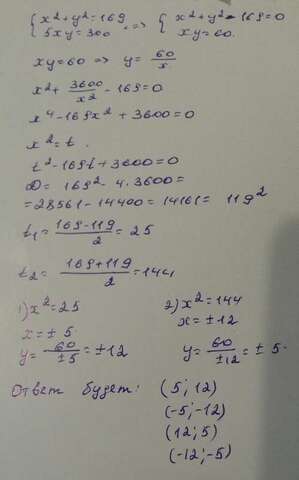 { x²+y²=169 ⇒ { x²+y²-169=0
{ 5xy=300 { xy=60.
xy=60 ⇒ y= 60/x.
x²+ 3600/x² -169=0
x⁴-169x²+3600=0
x²=t.
t²-169t+3600=0
D= 169²-4.3600=
=28561-14400=14161= 119²
t₁= (169-119)/2 = 25
t₂= (169+119)/2 = 144
1) x²=25 2) x²=144
x=±5 x=±12
y= 60/±5 =±12 y= 60/±12 =±5.
Ответ будет: (5; 12)
(-5;-12)
(12;5)
(-12;-5)